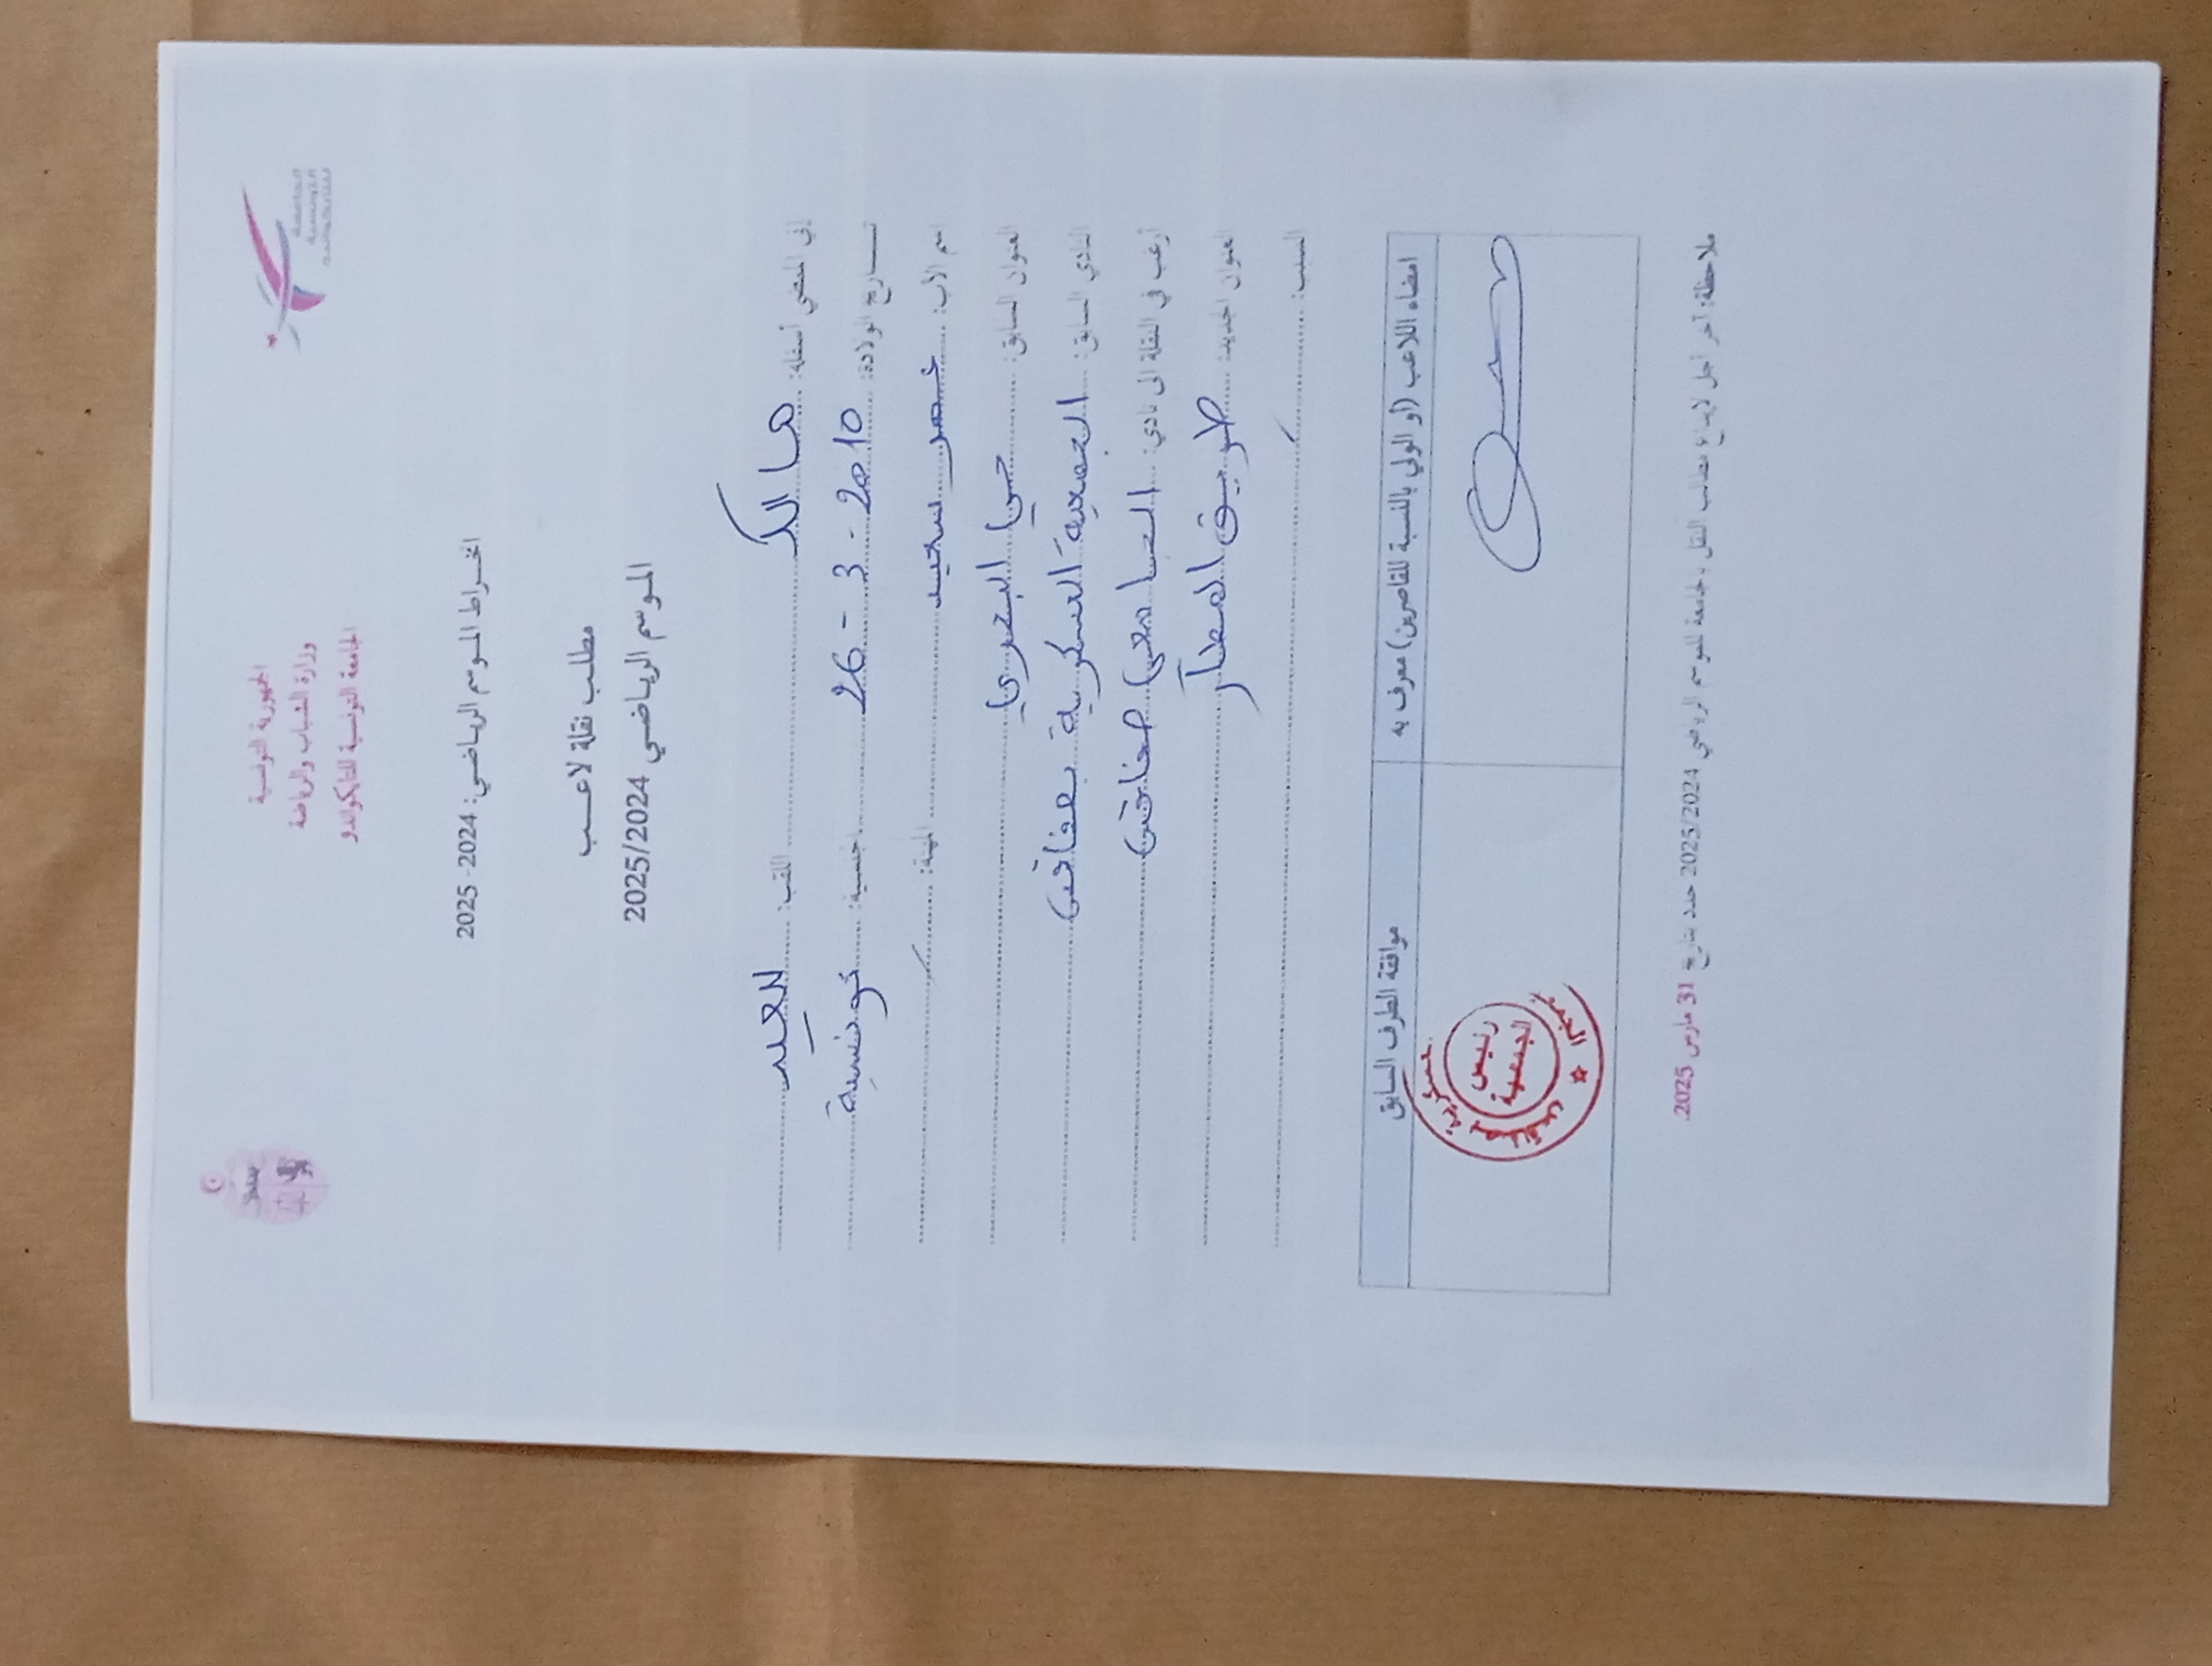 الجمهورية التونسية
وزارة الشباب والرياضة
الجامعة التونسية للتايكواندو
الجامعة
التونسية
للتايكواندو
انخراط الموسم الرياضي: 2024- 2025
مطلب نقلة لاعب
الموسم الرياضي 2025/2024
إني الممضي أسفله: مالك اللقب: لعيد
تاريخ الولادة: 26 - 3 - 2010 جنسية: تونسية
اسم الأب: عمر سعيد المهنة: /
العنوان السابق: حي البحري
النادي السابق: الجمعية العسكرية بصفاقس
أرغب في النقلة الى نادي: الجامعي صفاقس
العنوان الجديد: طريق المطار
السبب: /
امضاء اللاعب (أو الولي بالنسبة للقاصرين) معرف به
موافقة الطرف السابق
رئيس
الجمعية
العسكرية بصفاقس
ملاحظة: آخر اجل لإيداع مطالب النقل بالجامعة للموسم الرياضي 2025/2024 حدد بتاريخ 31 مارس 2025.